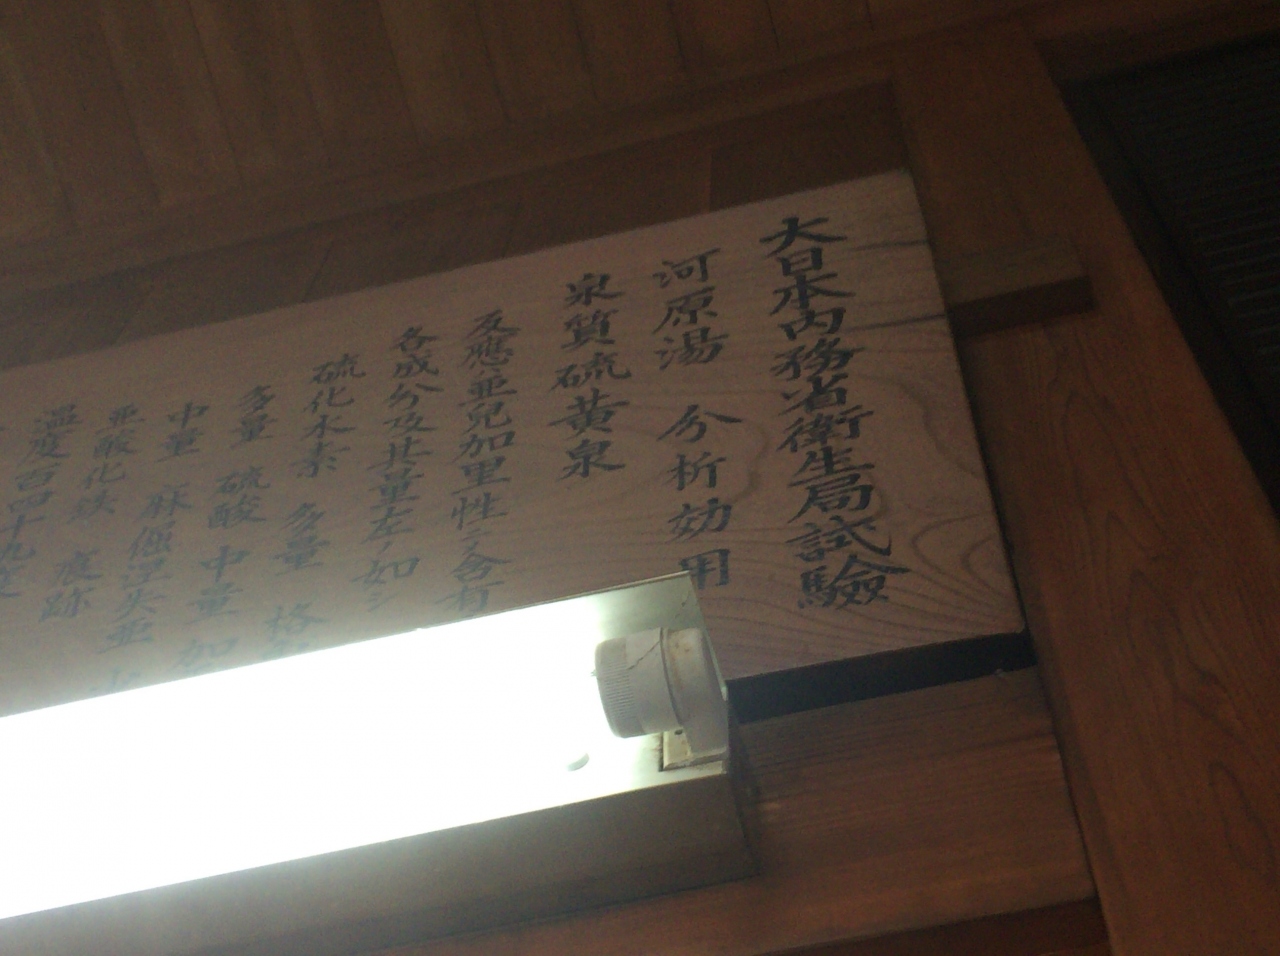 大日本内務省衛生局試驗
河原湯 分析効用
泉質硫黄泉
反應亜児加里性ニ乄含有
各成分及其量左ノ如シ
硫化水素 多量 格
多量 硫酸 中量 加
中量 麻倔涅失亜
亜酸化鉄 痕跡
温度百四十九度